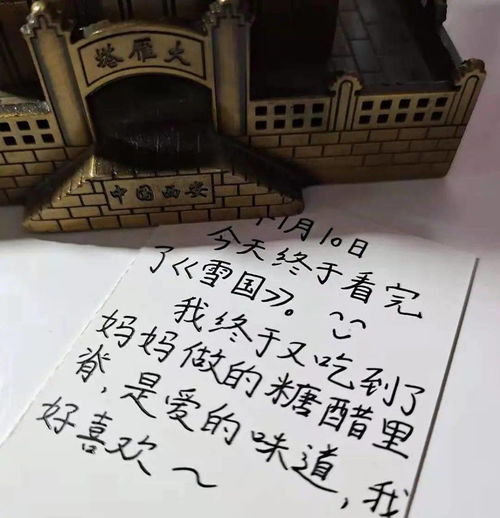 大雁塔
中国西安
11月10日
今天终于看完
了《雪国》。
我终于又吃到了
妈妈做的糖醋里
脊，是爱的味道，我
好喜欢～